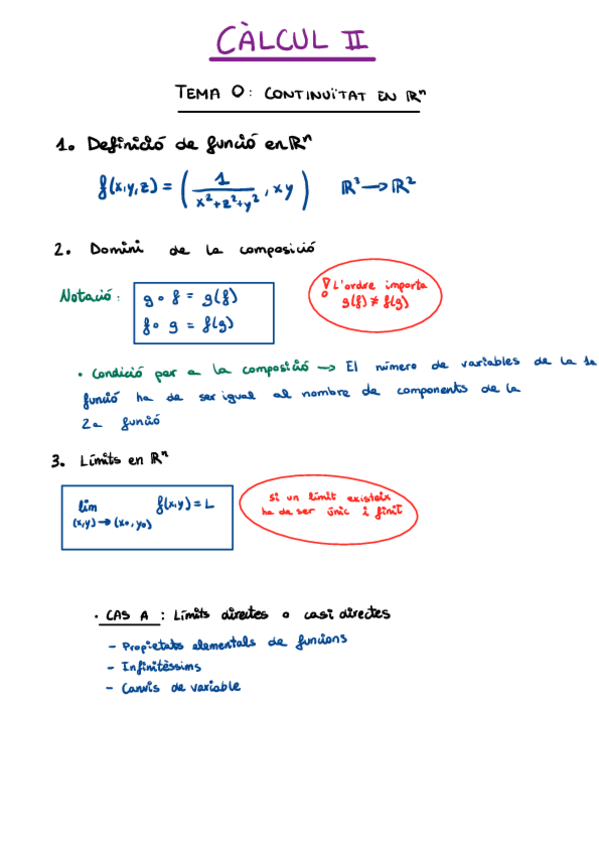 CÀLCUL II
TEMA 0: CONTINUÏTAT EN ℝⁿ
1. Definició de funció en ℝⁿ
f(x,y,z) = ( 1 / (x²+z²+y²) , xy )   ℝ³ → ℝ²
2. Domini de la composició
Notació:
g ∘ f = g(f)
f ∘ g = f(g)
! L'ordre importa
g(f) ≠ f(g)
· Condició per a la composició → El número de variables de la 1a
funció ha de ser igual al nombre de components de la
2a funció
3. Límits en ℝⁿ
lim f(x,y) = L
(x,y) → (x₀,y₀)
Si un límit existeix
ha de ser únic i finit
· CAS A : Límits directes o casi directes
- Propietats elementals de funcions
- Infinitèssims
- Canvis de variable